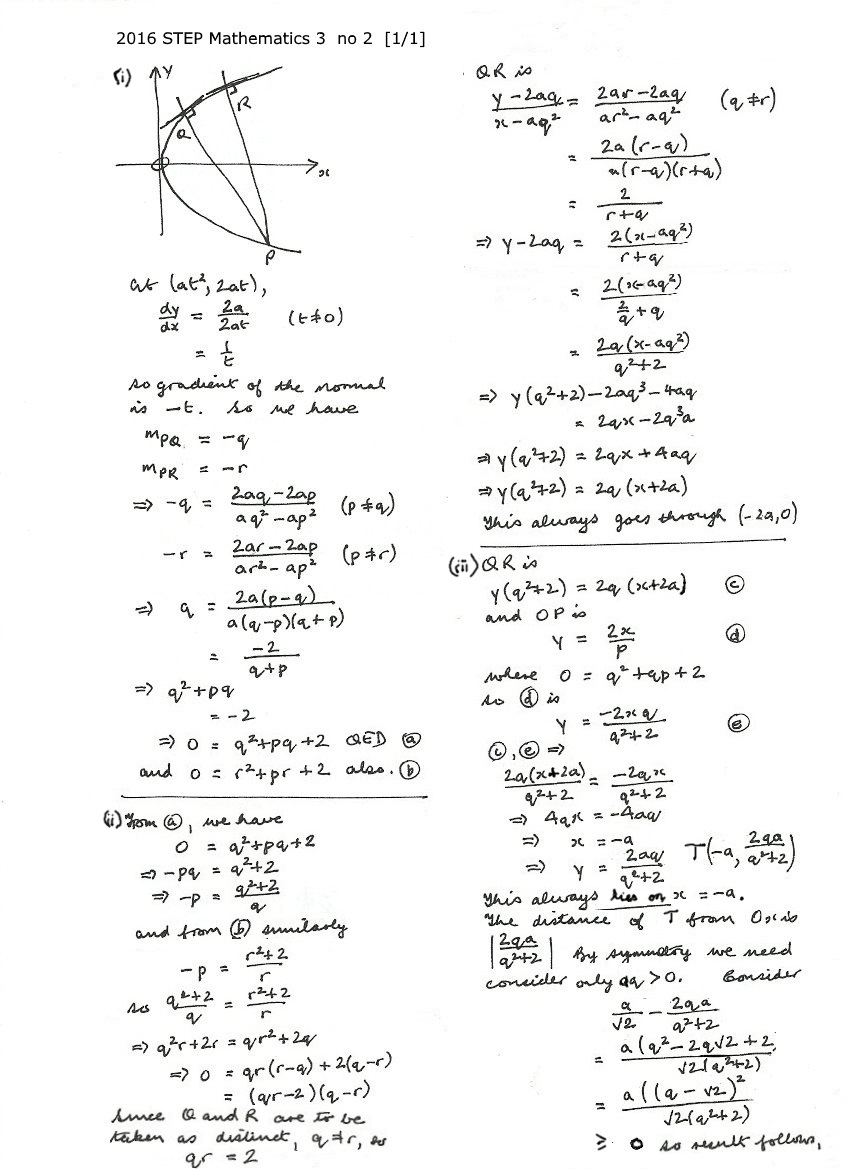 2016 STEP Mathematics 3 no 2 [1/1]
(i)
y
R
Q
O
x
P
at (at², 2at),
dy/dx = 2a/2at (t≠0)
= 1/t
so gradient of the normal
is -t. So we have
m_PQ = -q
m_PR = -r
⇒ -q = (2aq - 2ap)/(aq² - ap²) (p≠q)
-r = (2ar - 2ap)/(ar² - ap²) (p≠r)
⇒ q = 2a(p-q)/(a(q-p)(q+p))
= -2/(q+p)
⇒ q² + pq
= -2
⇒ 0 = q² + pq + 2 QED ⓐ
and 0 = r² + pr + 2 also. ⓑ
(ii) From ⓐ, we have
0 = q² + pq + 2
⇒ -pq = q² + 2
⇒ -p = (q²+2)/q
and from ⓑ similarly
-p = (r²+2)/r
so (q²+2)/q = (r²+2)/r
⇒ q²r + 2r = qr² + 2q
⇒ 0 = qr(r-q) + 2(q-r)
= (qr-2)(q-r)
Since Q and R are to be
taken as distinct, q≠r, so
qr = 2
QR is
(y - 2aq)/(x - aq²) = (2ar - 2aq)/(ar² - aq²) (q≠r)
= 2a(r-q)/(a(r-q)(r+q))
= 2/(r+q)
⇒ y - 2aq = 2(x-aq²)/(r+q)
= 2(x-aq²)/(2/q + q)
= 2q(x-aq²)/(q²+2)
⇒ y(q²+2) - 2aq³ - 4aq
= 2qx - 2q³a
⇒ y(q²+2) = 2qx + 4aq
⇒ y(q²+2) = 2q(x+2a)
This always goes through (-2a,0)
(iii) QR is
y(q²+2) = 2q(x+2a) ⓒ
and OP is
y = 2x/p ⓓ
where 0 = q² + qp + 2
so ⓓ is
y = -2xq/(q²+2) ⓔ
ⓒ, ⓔ ⇒
2q(x+2a)/(q²+2) = -2qx/(q²+2)
⇒ 4qx = -4aq
⇒ x = -a
⇒ y = 2aq/(q²+2) T(-a, 2qa/(q²+2))
This always lies on x = -a.
The distance of T from Ox is
|2qa/(q²+2)| By symmetry we need
consider only aq > 0. Consider
a/√2 - 2qa/(q²+2)
= a(q² - 2q√2 + 2)/(√2(q²+2))
= a((q - √2)²)/(√2(q²+2))
≥ 0 so result follows,